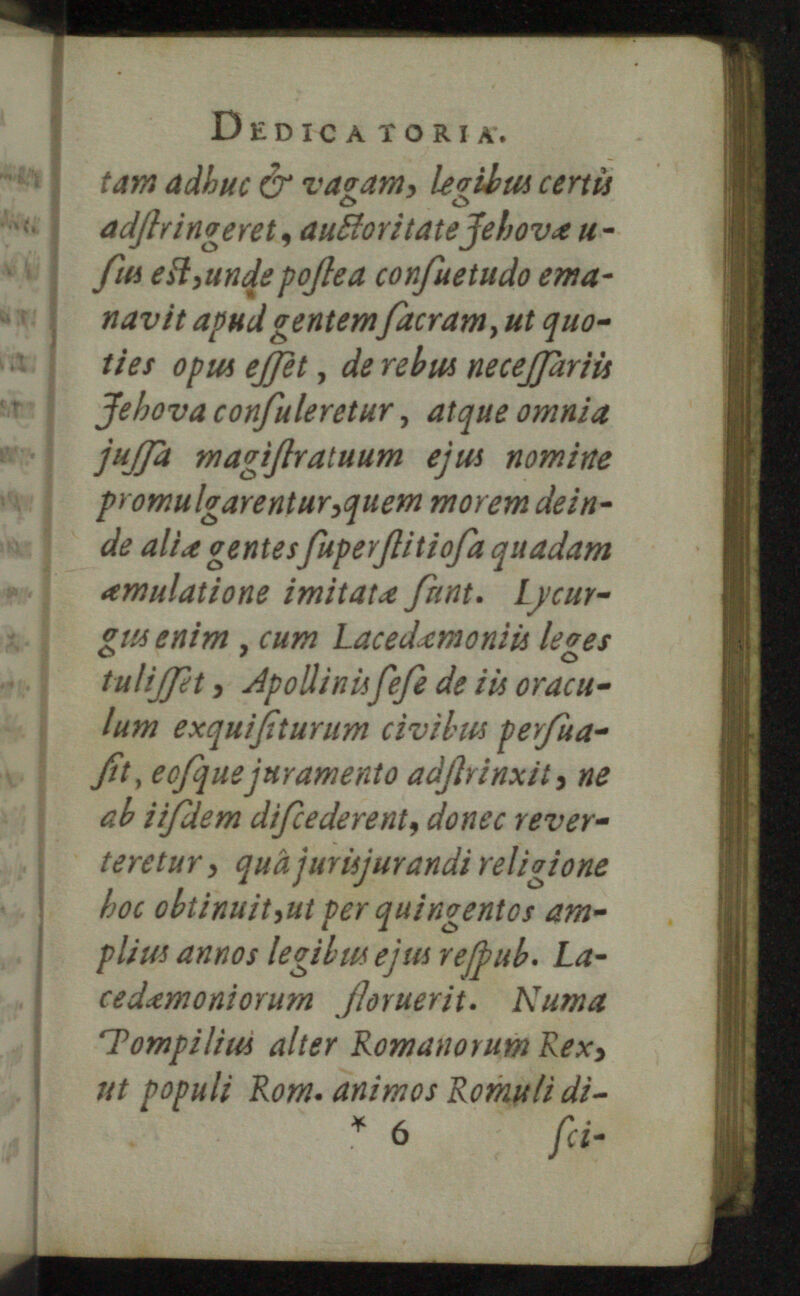 DEDICATORIA.
tam adhuc & vagam, legibus certis
adſtringeret, auctoritate Jehovæ u-
ſus eſt, unde poſtea conſuetudo ema-
navit apud gentem ſacram, ut quo-
ties opus eſſet, de rebus neceſſariis
Jehova conſuleretur, atque omnia
juſſa magiſtratuum ejus nomine
promulgarentur, quem morem dein-
de aliæ gentes ſuperſtitioſa quadam
æmulatione imitatæ ſunt. Lycur-
gus enim, cum Lacedæmoniis leges
tuliſſet, Apollinis ſeſe de iis oracu-
lum exquiſiturum civibus perſua-
ſit, eoſque juramento adſtrinxit, ne
ab iiſdem diſcederent, donec rever-
teretur, quâ jurisjurandi religione
hoc obtinuit, ut per quingentos am-
plius annos legibus ejus reſpub. La-
cedæmoniorum floruerit. Numa
Pompilius alter Romanorum Rex,
ut populi Rom. animos Romuli di-
* 6 ſci-